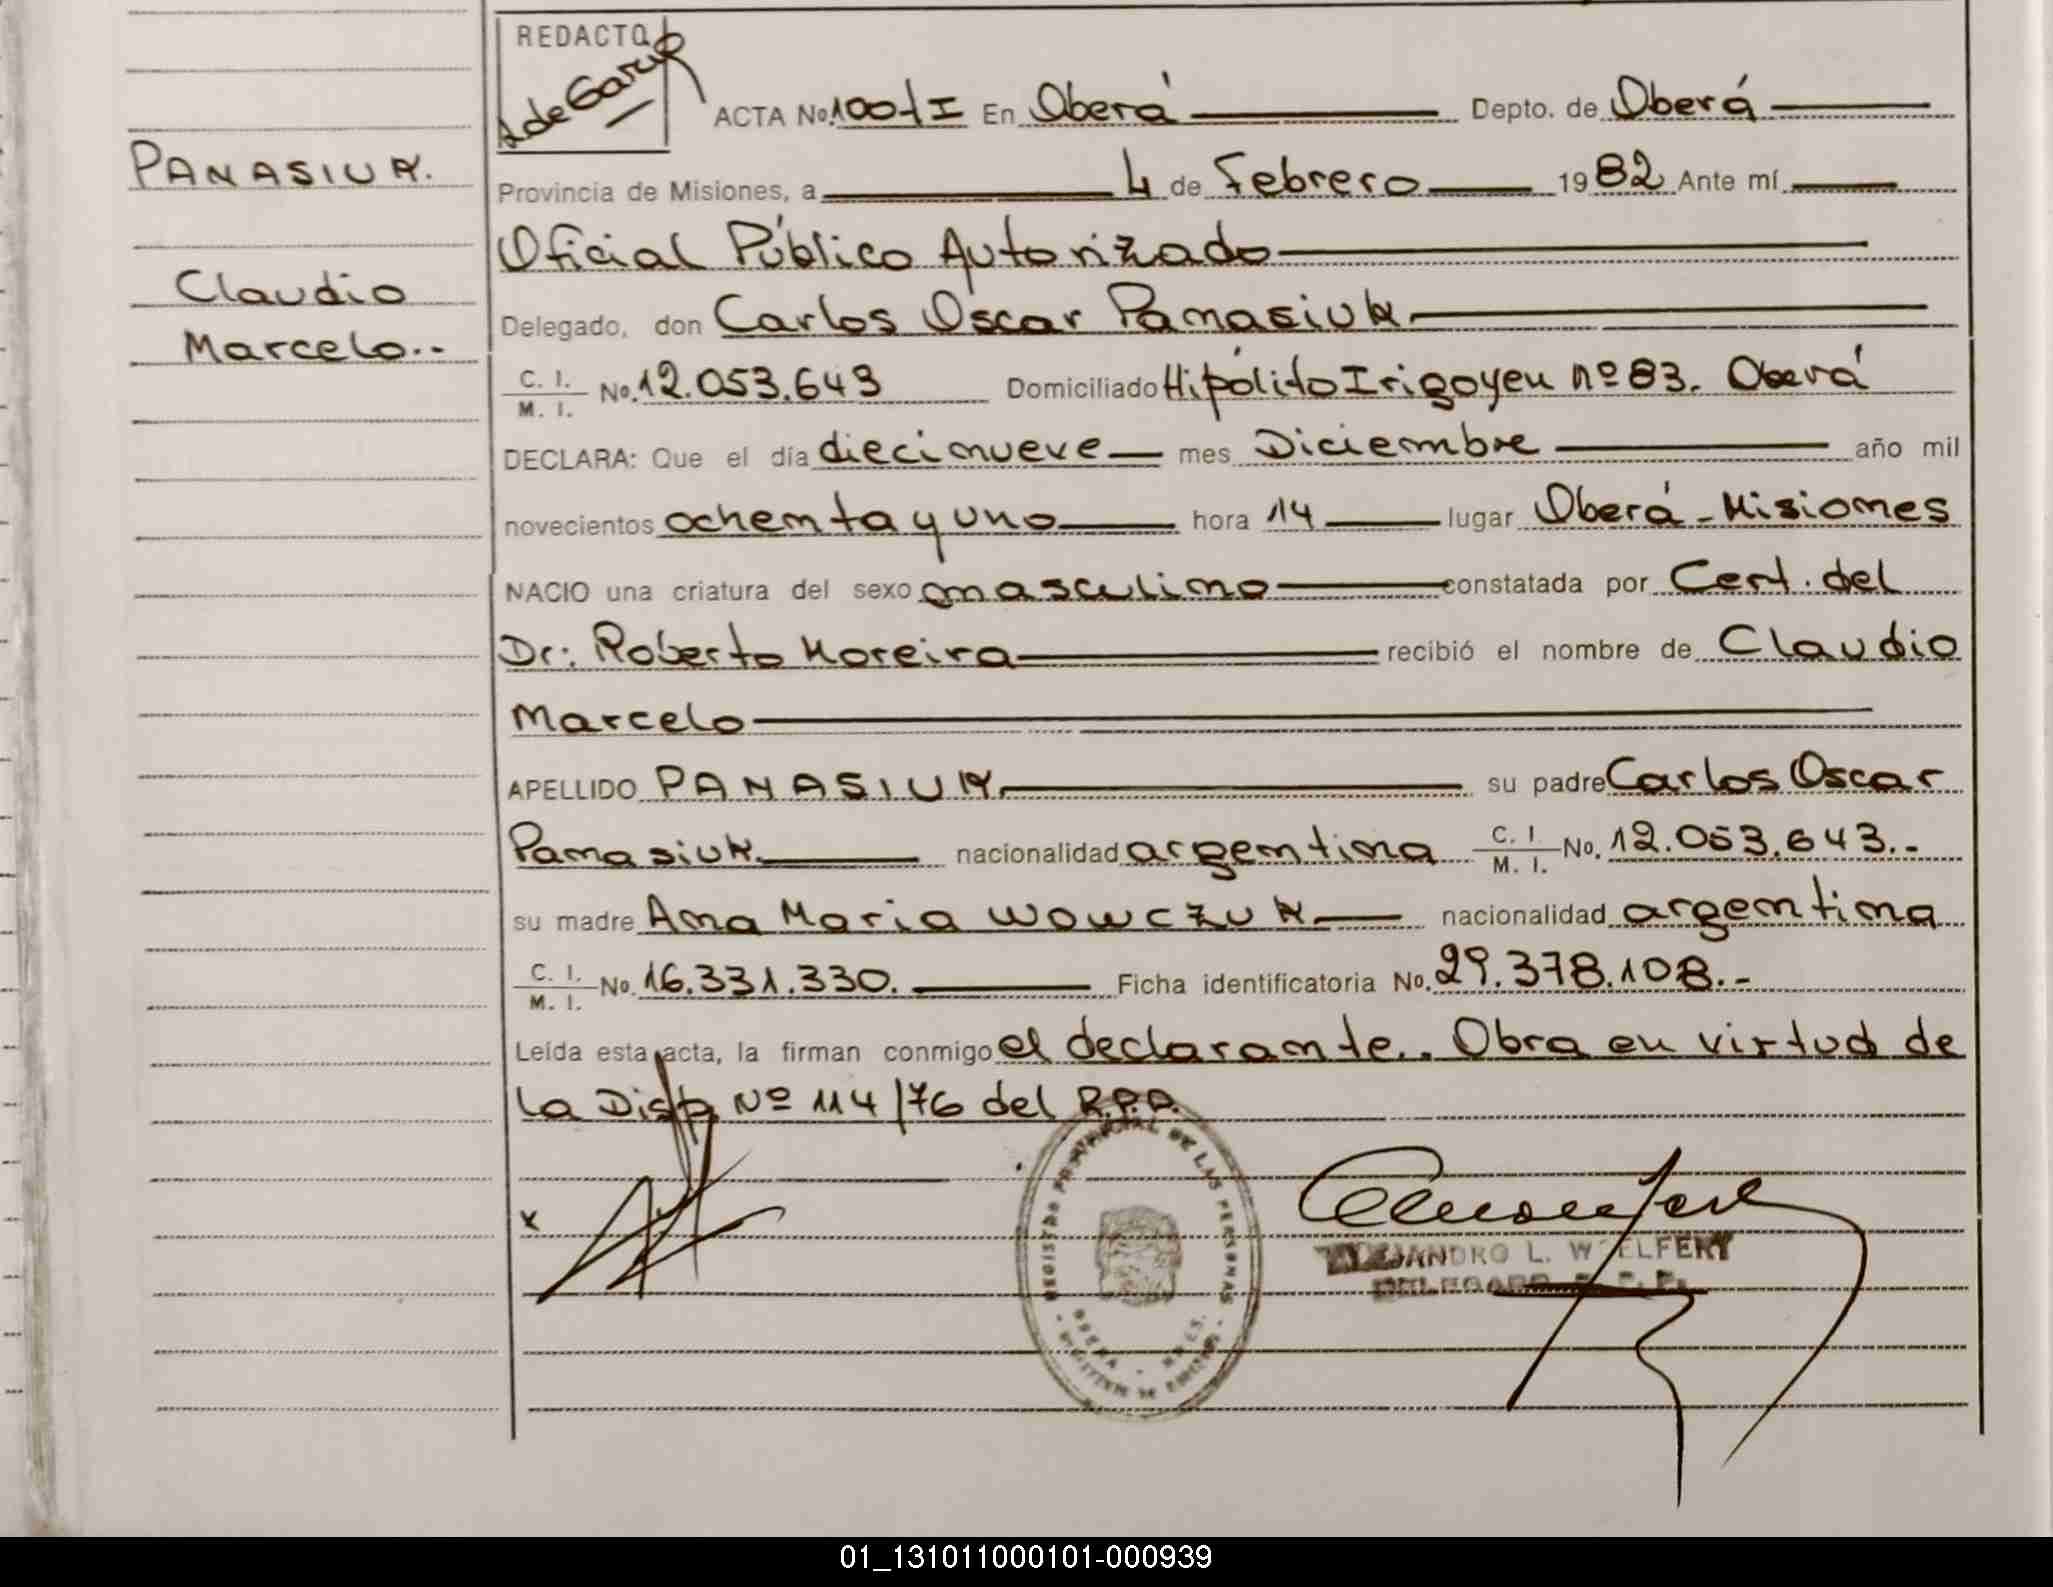 REDACTO
ACTA No. 100 f I En Oberá Depto. de Oberá
PANASIUK.
Provincia de Misiones, a 4 de Febrero 1982 Ante mí
Oficial Público Autorizado
Claudio
Marcelo..
Delegado, don Carlos Oscar Panasiuk
C. I.
M. I. No. 12.053.643 Domiciliado Hipólito Irigoyen nº 83. Oberá
DECLARA: Que el día diecinueve mes Diciembre año mil
novecientos ochenta y uno hora 14 lugar Oberá - Misiones
NACIO una criatura del sexo masculino constatada por Cert. del
Dr: Roberto Moreira recibió el nombre de Claudio
Marcelo
APELLIDO PANASIUK su padre Carlos Oscar
Panasiuk. nacionalidad argentina C. I. M. I. No. 12.053.643.-
su madre Ana Maria WOWCZUK nacionalidad argentina
C. I.
M. I. No. 16.331.330. Ficha identificatoria No. 29.378.108.-
Leída esta acta, la firman conmigo el declarante.. Obra en virtud de
la Disp. Nº 114/76 del R.P.P.
x
REGISTRO PROVINCIAL DE LAS PERSONAS
OBERA - MNES.
ALEJANDRO L. WOELFERT
DELEGADO R. P. P.
01_131011000101-000939